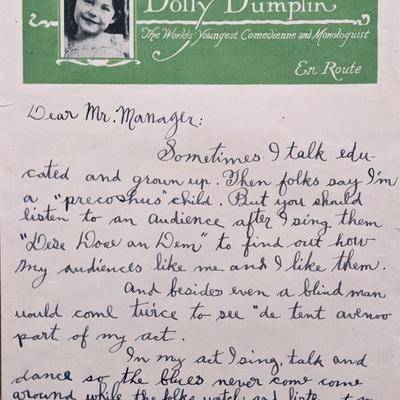 Dolly Dumplin
The World's Youngest Comedienne and Monologuist
En Route
Dear Mr. Manager:
Sometimes I talk edu-
cated and grown up. Then folks say I'm
a "precoshus" child. But you should
listen to an audience after I sing them
"Dese Dose an Dem" to find out how
my audiences like me and I like them.
And besides even a blind man
would come twice to see "de tent avenoo
part of my act.
In my act I sing, talk and
dance so the blues never come come
around while the folks watch and